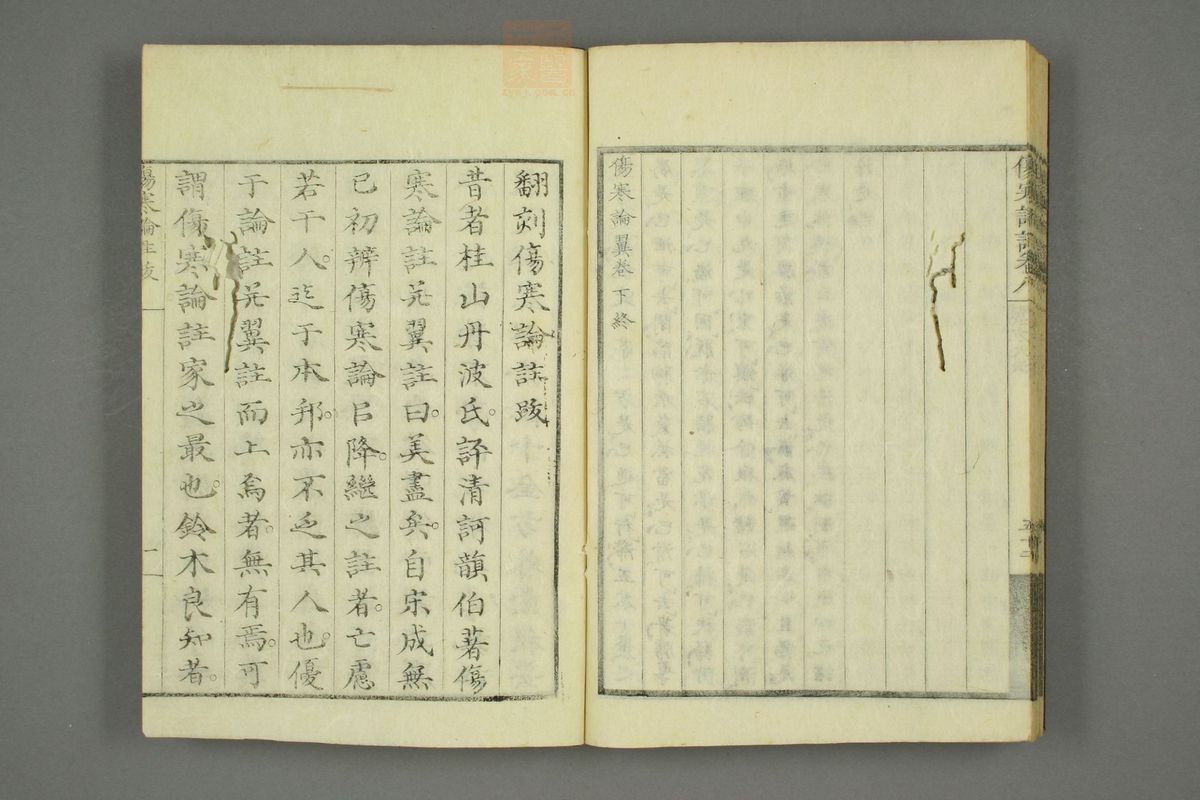 傷寒論翼卷下終
五十二
翻刻傷寒論註跋
昔者桂山丹波氏評清訶韻伯著傷
寒論註并翼註曰美盡矣自宋成無
已初辨傷寒論㠯降繼之註者亡慮
若干人迄于本邦亦不乏其人也優
于論註并翼註而上焉者無有焉可
謂傷寒論註家之最也鈴木良知者
傷寒論註跋
一
zysj.com.cn